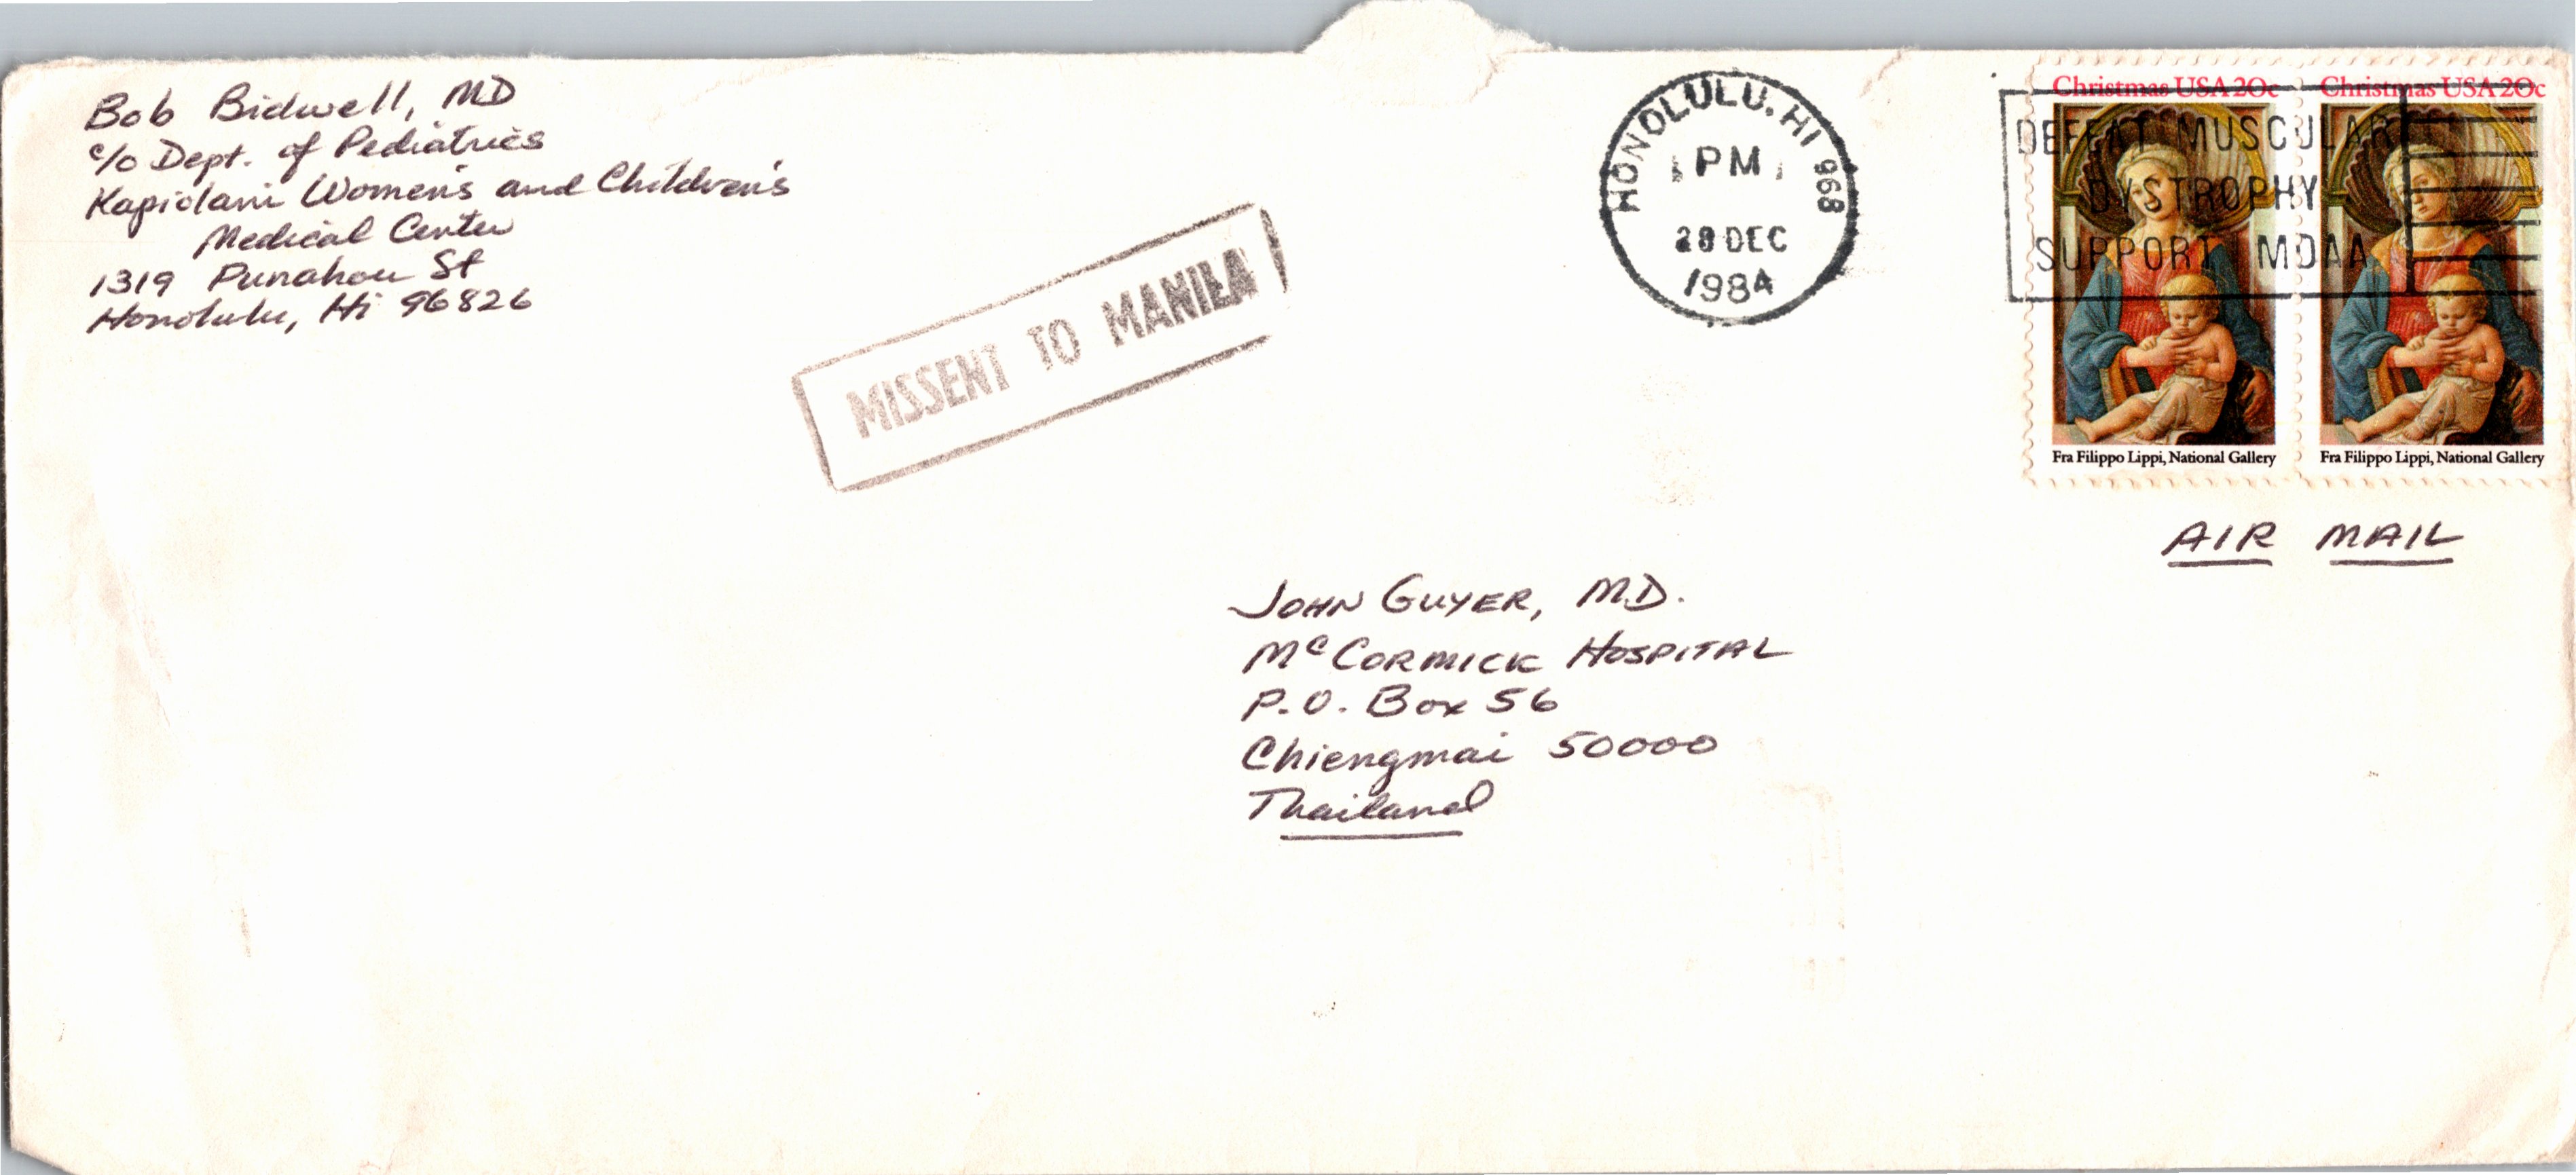 Bob Bidwell, MD
c/o Dept. of Pediatrics
Kapiolani Women's and Children's
Medical Center
1319 Punahou St
Honolulu, Hi 96826
MISSENT TO MANILA
HONOLULU, HI 968
PM
28 DEC
1984
DEFEAT MUSCULAR
DYSTROPHY
SUPPORT MDAA
Christmas USA 20c
Fra Filippo Lippi, National Gallery
Christmas USA 20c
Fra Filippo Lippi, National Gallery
AIR MAIL
JOHN GUYER, M.D.
McCORMICK HOSPITAL
P.O. Box 56
Chiengmai 50000
Thailand